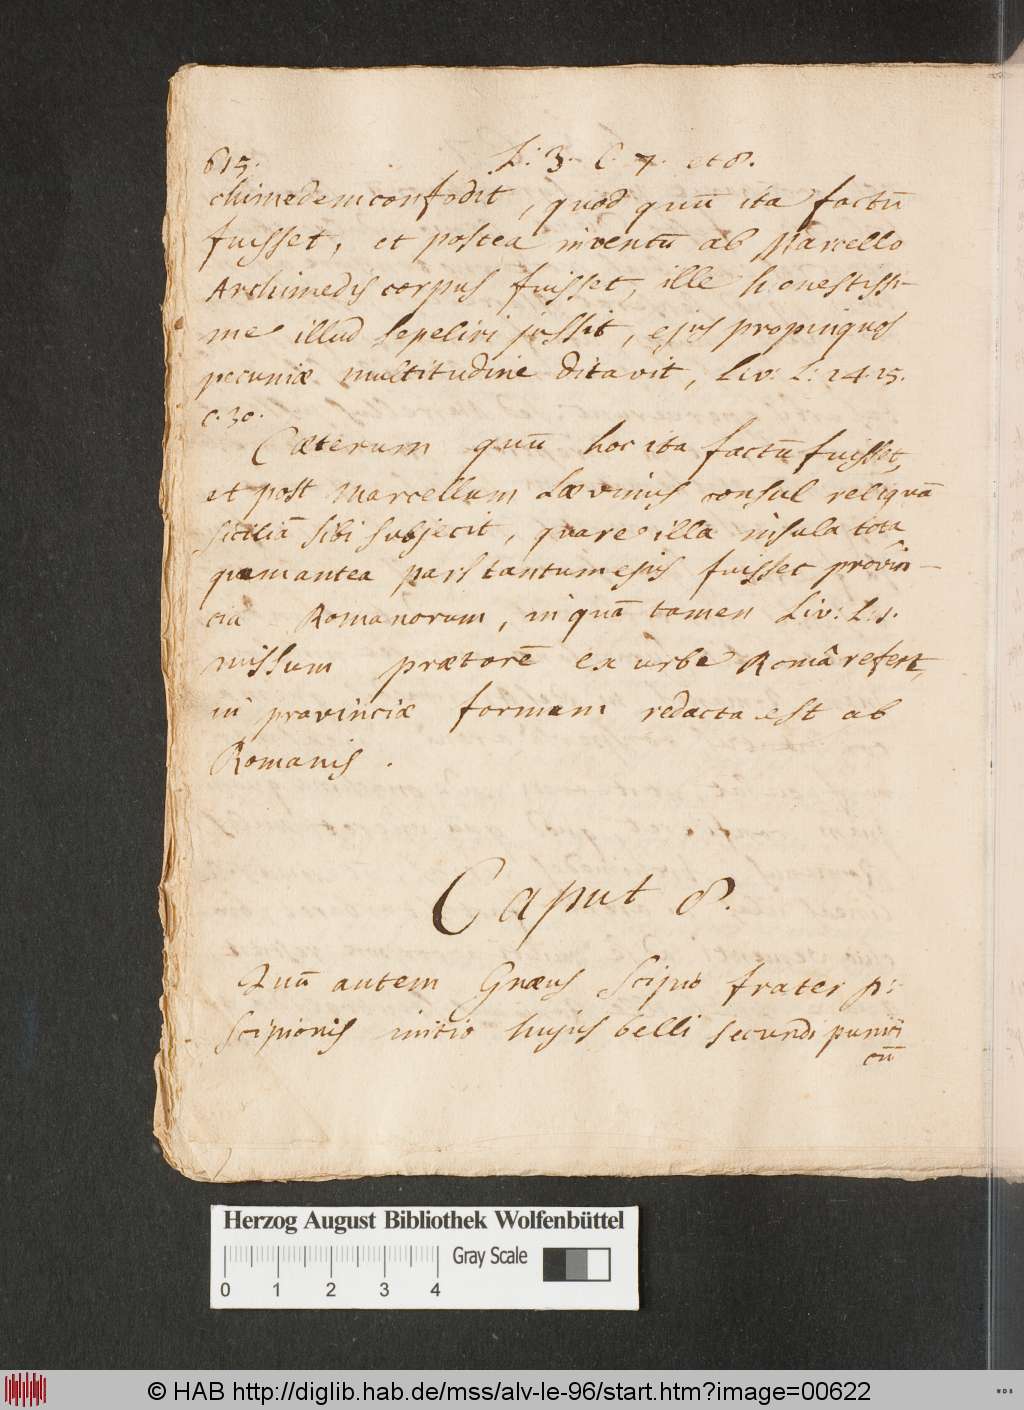 615. L: 3. C. 7. et 8.
chimedem confodit, quod quū ita factū
fuisset, et postea inventū ab Marcello
Archimedis corpus fuisset, ille honestissi-
me illud sepeliri jussit, ejus propinquos
pecuniæ multitudine ditavit, Liv: L: 24. 25.
c. 30.
Cæterum quū hoc ita factū fuisset,
et post Marcellum Lævinus consul reliquā
siciliā sibi subjecit, quare illa insula tota
quæ antea pars tantum ejus fuisset provin-
cia Romanorum, in quā tamen Liv: L: 1.
missum prætorē ex urbe Româ refert,
in provinciæ formam redacta est ab
Romanis.
Caput 8.
Quū autem Gnæus Scipio frater P:
Scipionis initio hujus belli secundi punici
cū
Herzog August Bibliothek Wolfenbüttel
Gray Scale
0 1 2 3 4
© HAB http://diglib.hab.de/mss/alv-le-96/start.htm?image=00622